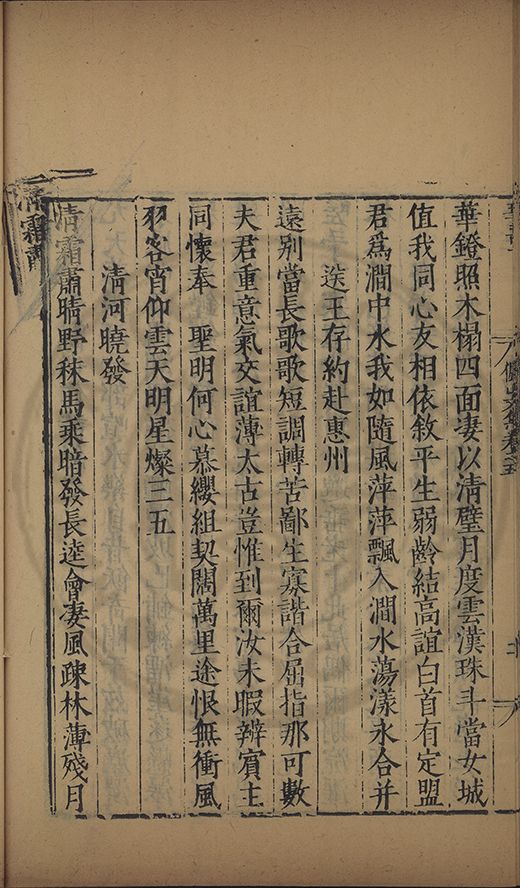 華鐙照木榻四面淒以清璧月度雲漢珠斗當女城
值我同心友相依敘平生弱齡結高誼白首有定盟
君爲澗中水我如隨風萍萍飄入澗水蕩漾永合并
送王存約赴惠州
遠別當長歌歌短調轉苦鄙生寡諧合屈指那可數
夫君重意氣交誼薄太古豈惟到爾汝未暇辨賓主
同懷奉 聖明何心慕纓組契闊萬里途恨無衝風
羽客宵仰雲天明星燦三五
清河曉發
清霜肅晴野秣馬乘暗發長逵會淒風疎林薄殘月